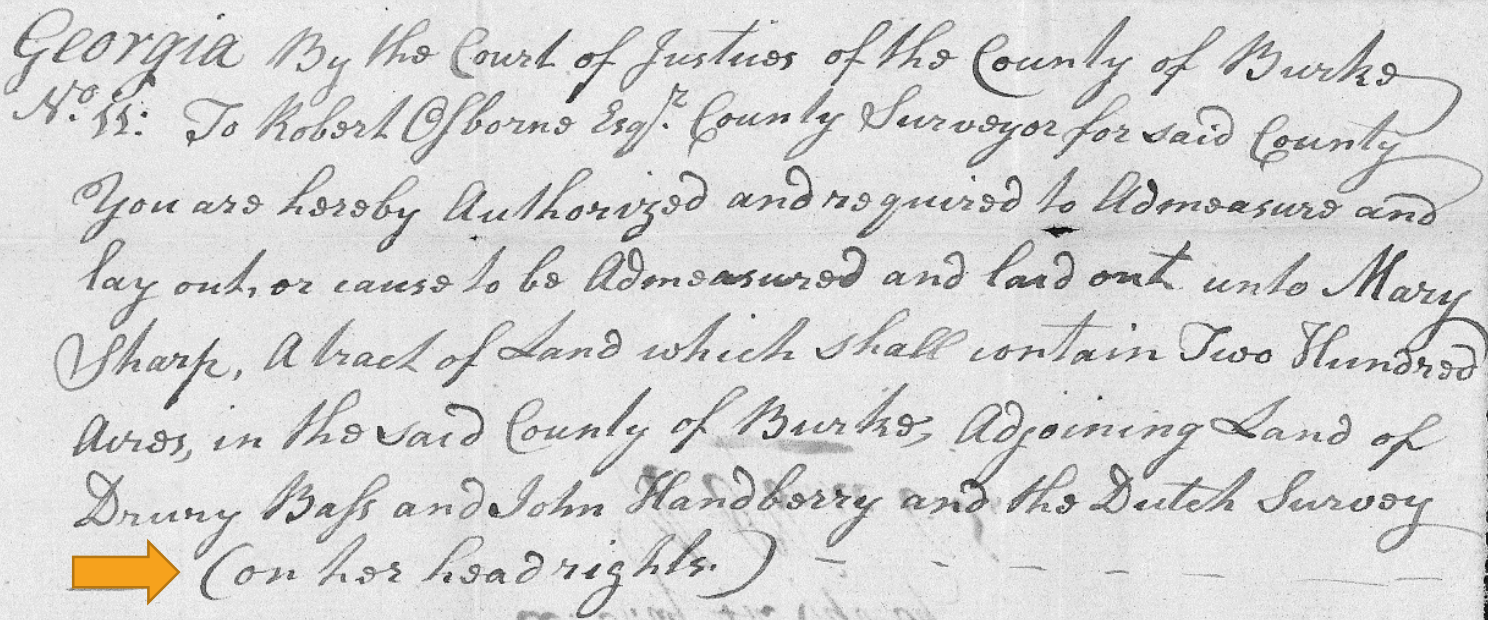 Georgia By the Court of Justices of the County of Burke
No. 11: To Robert Osborne Esqr. County Surveyor for said County
You are hereby Authorized and required to Admeasure and
lay out, or cause to be Admeasured and laid out unto Mary
Sharp, A tract of Land which shall contain Two Hundred
Acres, in the said County of Burke, Adjoining Land of
Drury Bass and John Handberry and the Dutch Survey
(on her headrights.)